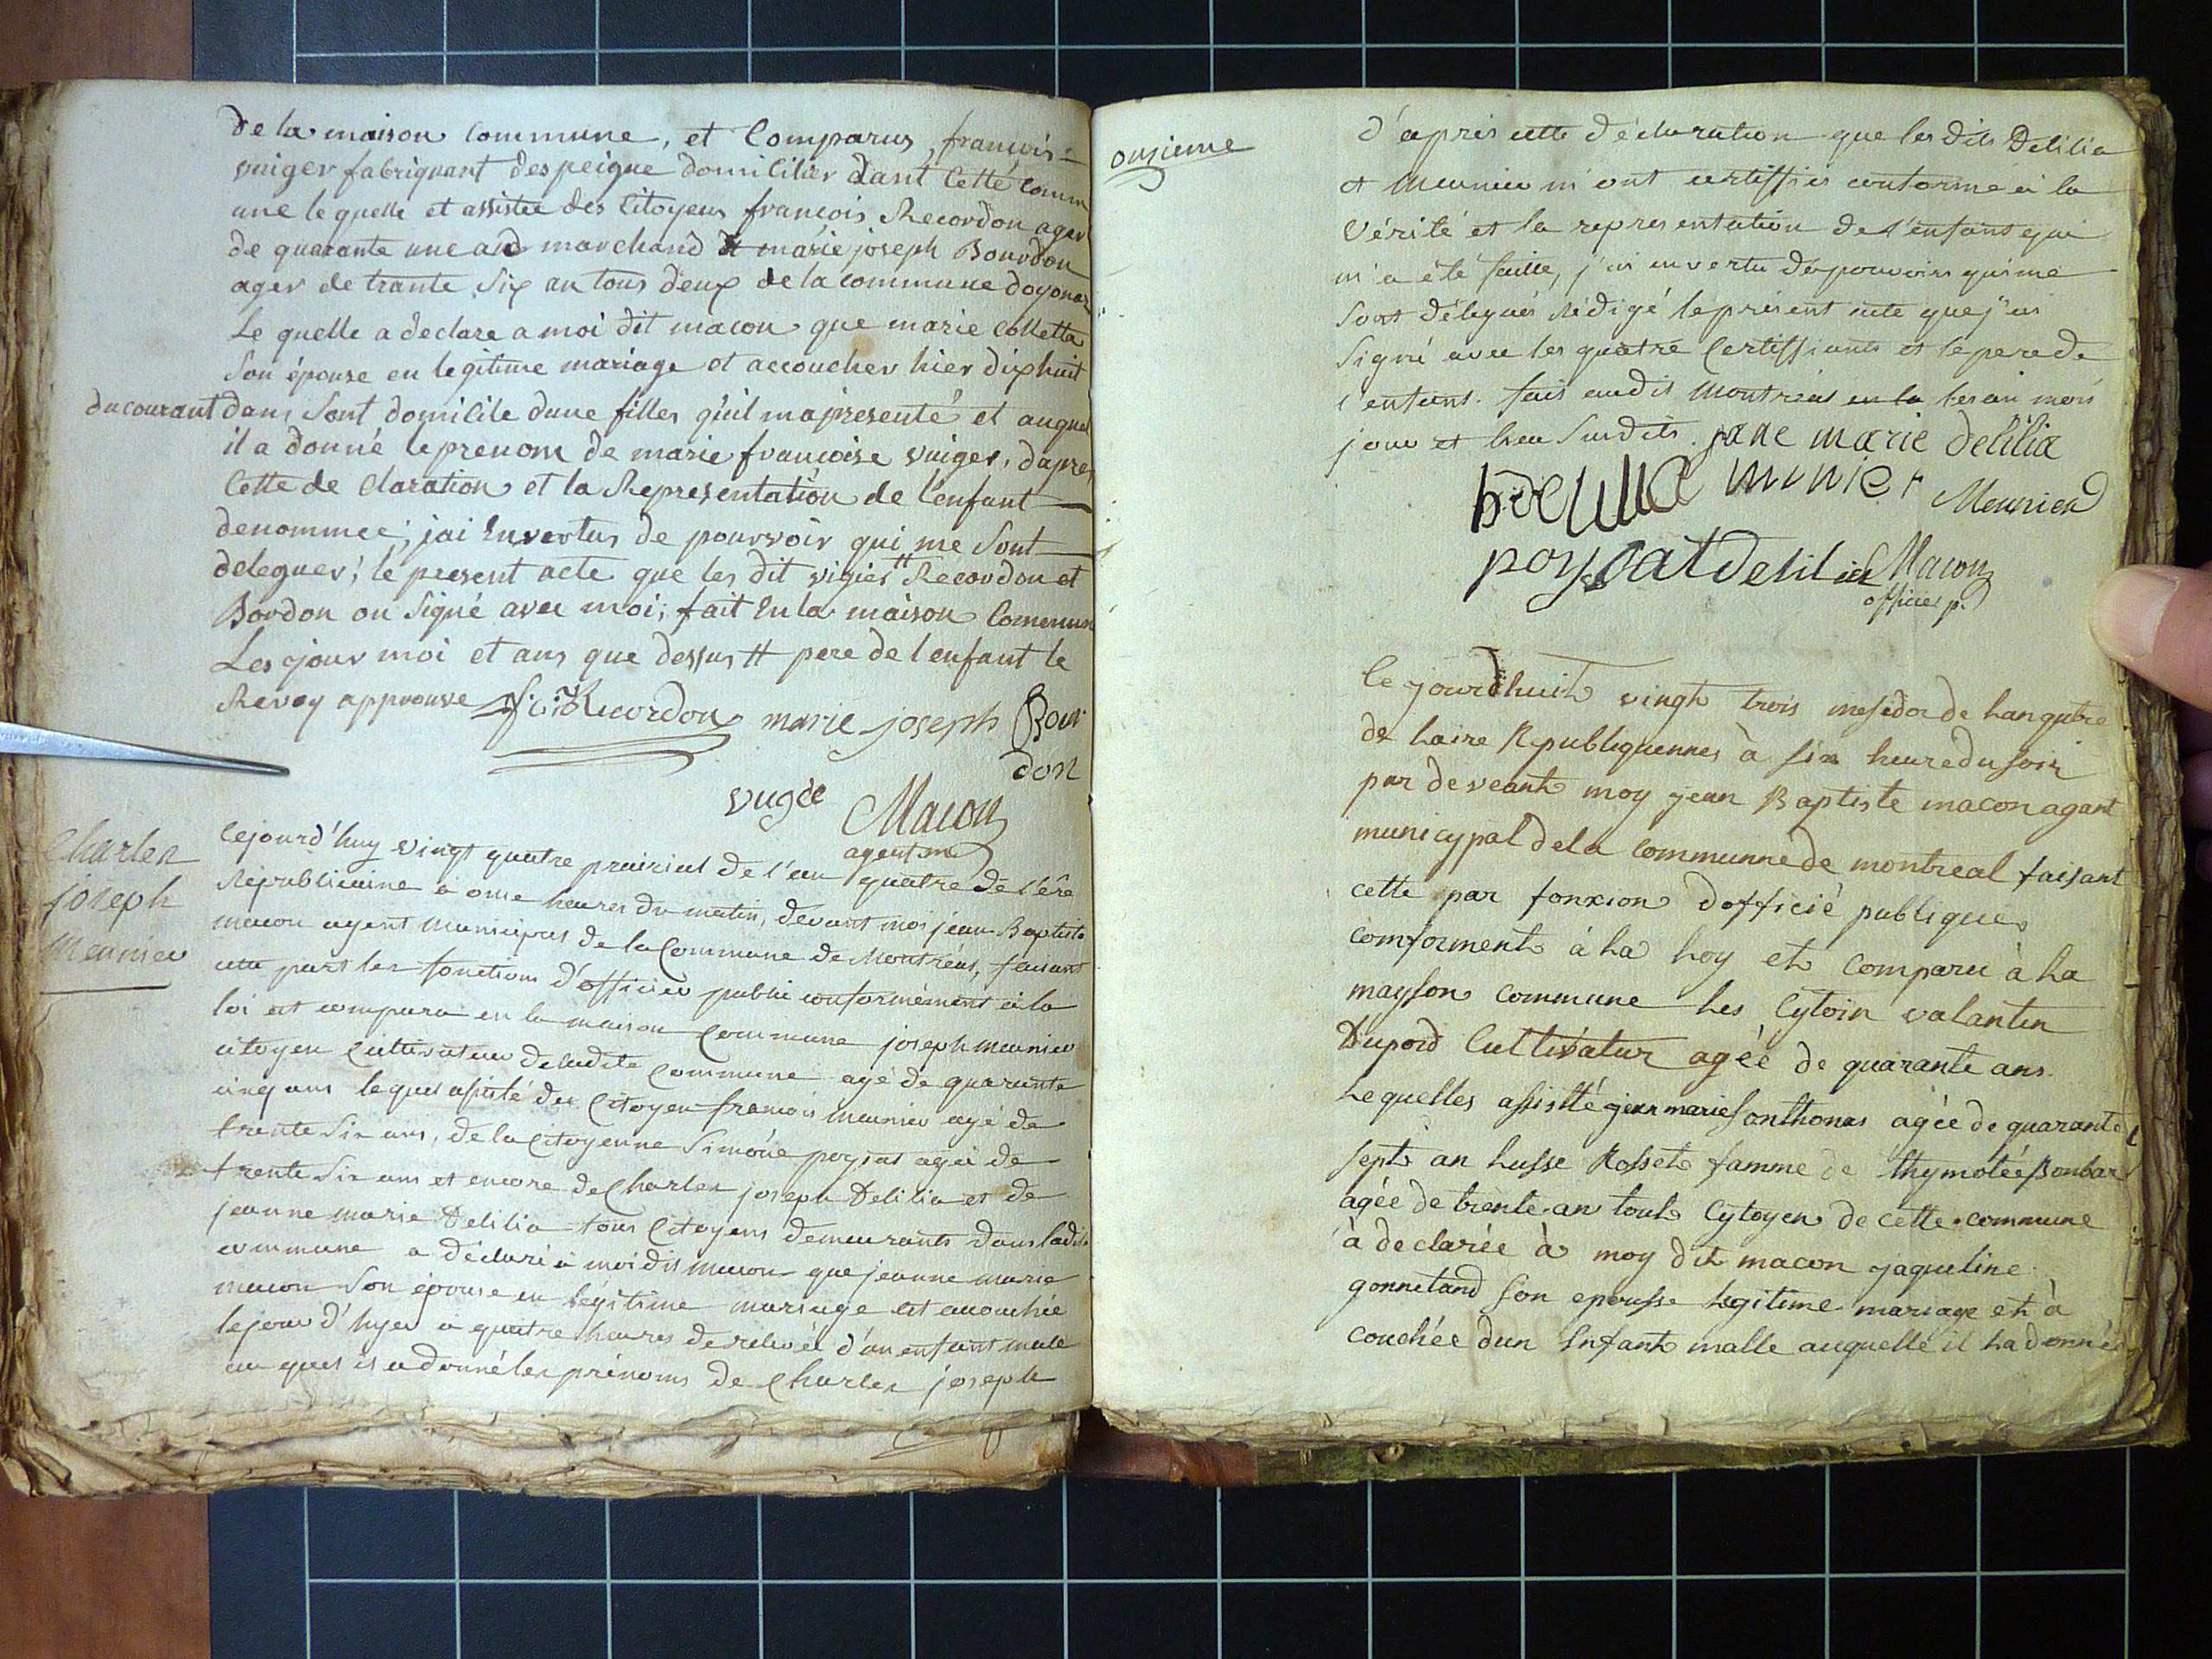 de la maison commune, et Comparus, francois
vuiger fabriquant des peigne domicilier dant Cette Comm
une le quelle et assistee des Citoyens francois Recordon ager
de quarante une and marchand & marie joseph Bourdon
ager de trante Six an tous deux de la commune doyonax
Le quelle a declare a moi dit macon que marie Colletta
Son épouse en legitime mariage et accoucher hier dixhuit
du courant dans Sont domicile dune filles qu'il ma presenté et auquel
il a donné le prenom de marie francoise vuiger, dapres
Cette de Claration et la Representation de l'enfant
denommee; jai Envertus de pourvoir qui me Sont
deleguer; le present acte que les dit vigier # Recordon et
Bordon on Signé avec moi; fait En la maison Commune
Les jour moi et ans que dessus # pere de l'enfant le
Revoy approuve fr: Recordon marie joseph Bour
don
vugée Macon
agent m
Charles
joseph
Meunier
Cejourd'huy vingt quatre prairial de l'an quatre de l'ère
Républicaine à onze heures du matin, devant moi jean Baptiste
macon agent municipal de la Commune de Montréal, faisant
cette part les fonctions d'officier public conformément à la
loi est comparu en la maison Commune joseph meunier
citoyen Cultivateur de ladite Commune agé de quarante
cinq ans lequel assisté du Citoyen francois meunier agé de
trente six ans, de la Citoyenne Simone poysat agée de
trente Six ans et encore de Charles joseph Delilia et de
jeanne marie Delilia tous Citoyens demeurants dans ladite
commune a déclaré à moi dit macon que jeanne marie
macon Son épouse en légitime mariage est accouchée
le jour d'hyer à quatre heures de relevée d'un enfant male
au quel il a donné les prénoms de Charles joseph
onzieme
d'après cette déclaration que les dits Delilia
et Meunier m'ont certiffiés conforme à la
Vérité et la representation de l'enfant qui
m'a été faitte, j'ai en vertu des pouvoirs qui me
Sont délégués rédigé le présent acte que j'ai
Signé avec les quatre Certiffiants et le pere de
l'enfant. fait audit Montréal en la les an mois
jour et lieu Susdits. jane marie delilia
minier Meunier
poysat Delilia Macon
officier p.
Ce jourdhuit vingt trois mesidor de lan quatre
de laire Republiquennes à six heure du soir
par deveant moy jean Baptiste macon agant
municypal de la communne de montreal faisant
cette par fonxion dofficié publique
comforment à la loy et comparu à la
mayson commune les Cytoin valantin
Dupord Cultivatur agée de quarante ans.
Lequelles assistté jean marie Sonthonas agée de quarante
sept an lusse Rosset famme de thymotée Bonbar
agée de trente an touts Cytoyen de cette commune
à declarée à moy dit macon jaqueline
gonnetand son epousse legitime mariage et à
couchée dun Enfant malle auquelle il la donnée